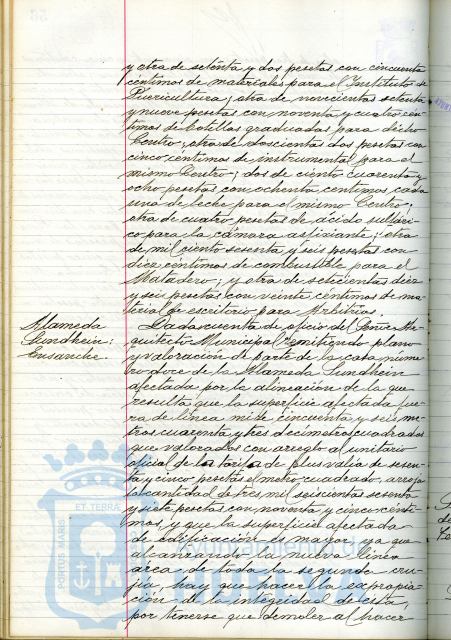 y otra de setenta y dos pesetas con cincuenta
céntimos de materiales para el Instituto de
Puericultura; otra de novecientas setenta
y nueve pesetas con noventa y cuatro cén-
timos de botellas graduadas para dicho
Centro; otra de doscientas dos pesetas con
cinco céntimos de instrumental para el
mismo Centro; dos de ciento cuarenta y
ocho pesetas con ochenta céntimos, cada
una de leche para el mismo Centro;
otra de cuatro pesetas de ácido sulfúri-
co para la cámara asfixiante; otra
de mil ciento sesenta y seis pesetas con
diez céntimos de combustible para el
Matadero; y otra de setecientas diez
y seis pesetas con veinte céntimos de ma-
terial de escritorio para Arbitrios.
Alameda
Sundhein:
Ensanche.
Dada cuenta de oficio del Perito Ar-
quitecto Municipal remitiendo plano
y valoración de parte de la casa núme-
ro doce de la Alameda Sundhein
afectada por la alineación de la que
resulta que la superficie afectada fue-
ra de línea mide cincuenta y seis me-
tros cuarenta y tres decímetros cuadrados
que valorados con arreglo al unitario
oficial de la tarifa de plus valía de sesen-
ta y cinco pesetas el metro cuadrado, arroja
la cantidad de tres mil seiscientas sesenta
y siete pesetas con noventa y cinco cénti-
mos, y que la superficie afectada
de edificación es mayor, ya que
alcanzando la nueva línea
área de toda la segunda cru-
jía, hay que hacer la expropia-
ción de la integridad de esta,
por tenerse que demoler al hacer
PORTUS MARIS
ET TERRÆ
Ayuntamiento de
HUELVA